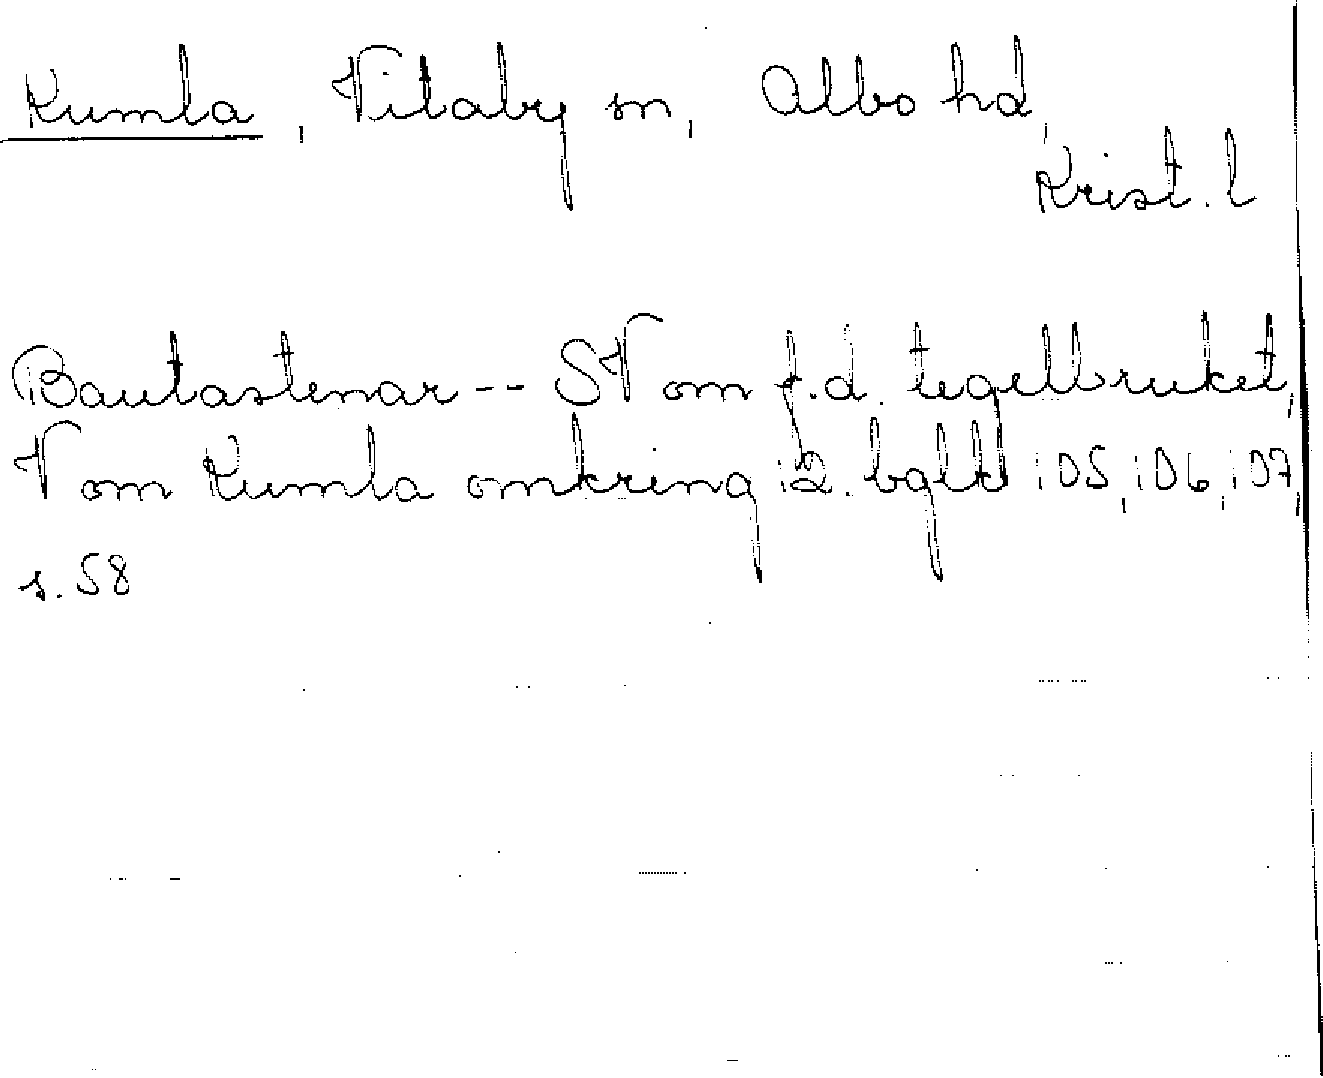 Kumla, Vitaby sn, Albo hd,
Krist. l
Bautastenar -- SV om f.d. tegelbruket,
V om Kumla omkring 12. bgld 105, 106, 107,
s. 58